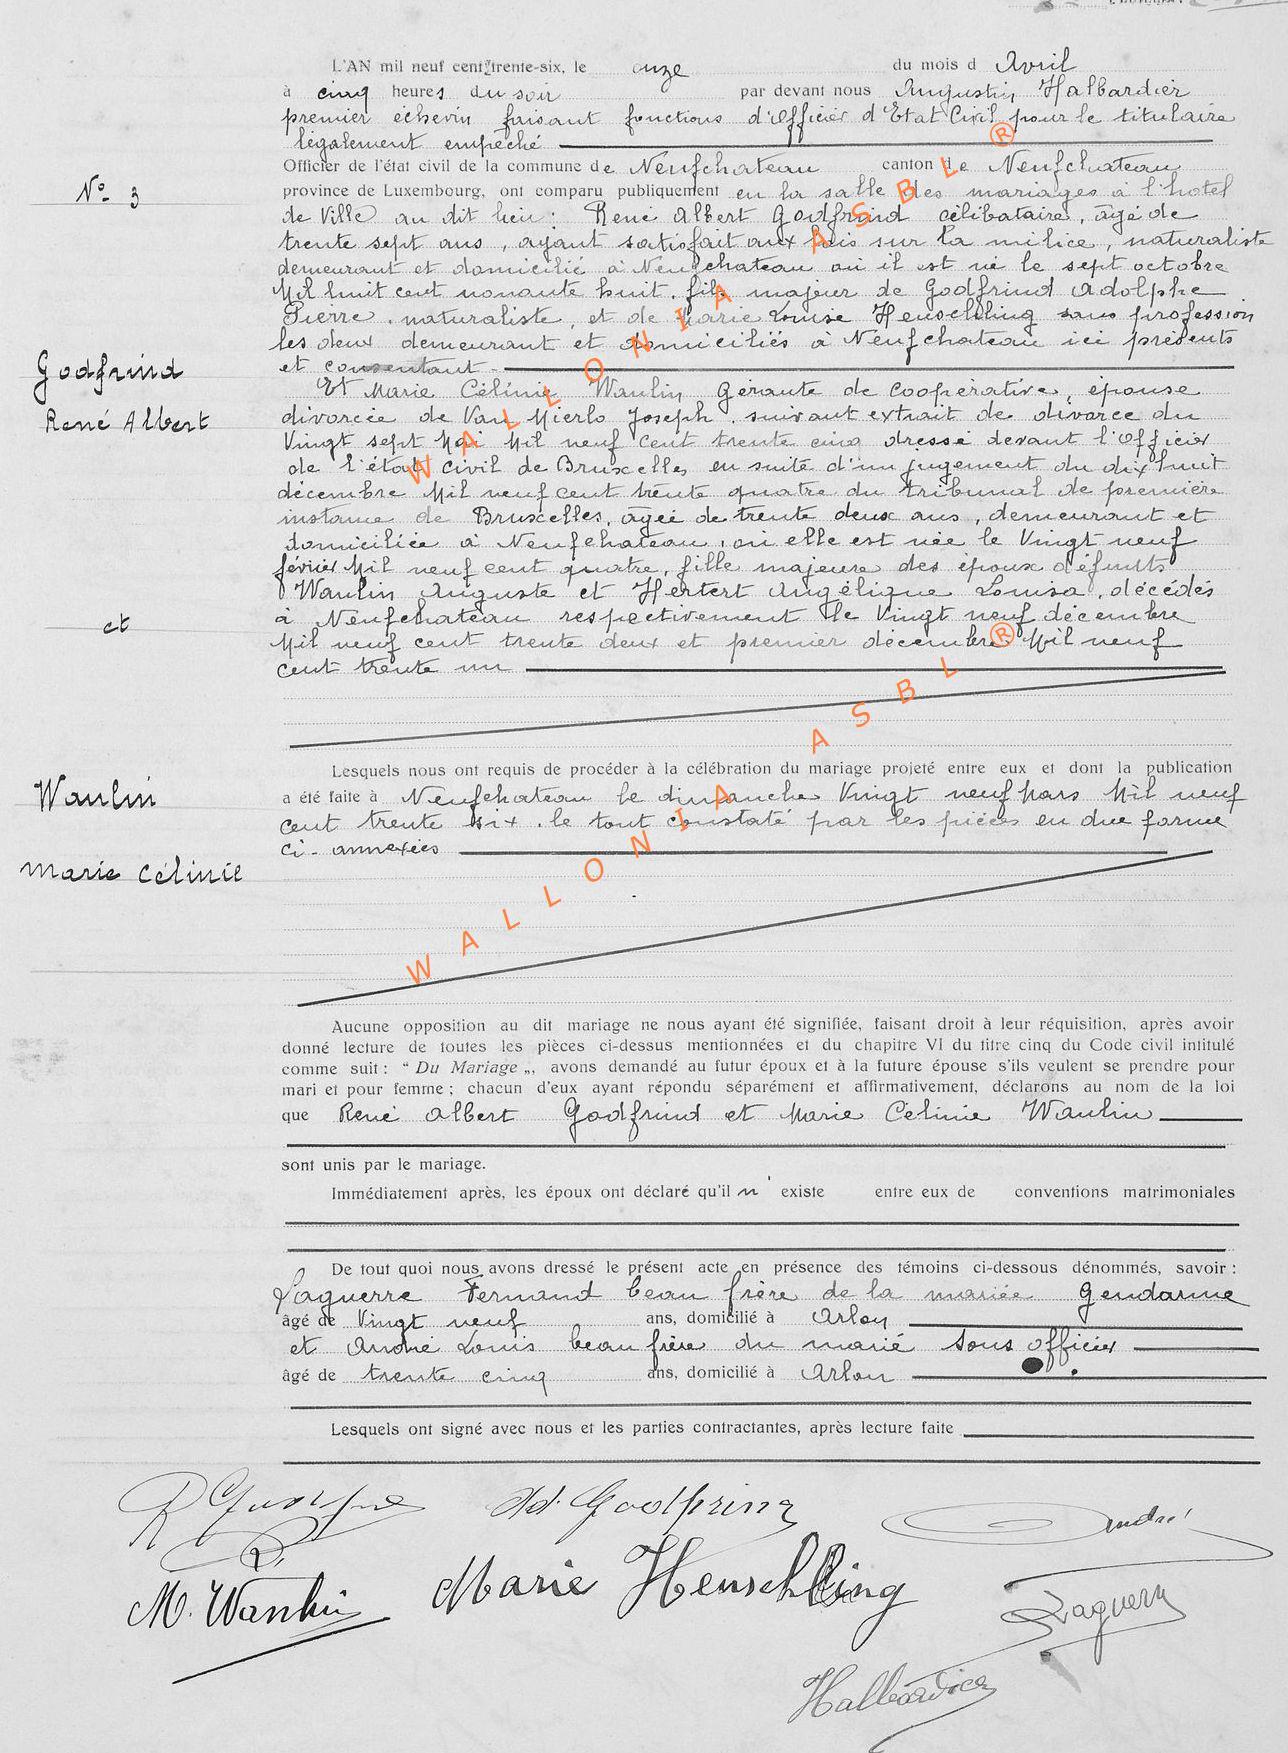 L'AN mil neuf cent trente-six, le onze du mois d Avril
à cinq heures du soir par devant nous Augustin Halbardier
premier échevin faisant fonctions d'Officier d'Etat Civil pour le titulaire
légalement empêché
Officier de l'état civil de la commune de Neufchateau canton de Neufchateau
N° 3
province de Luxembourg, ont comparu publiquement en la salle des mariages à l'hotel
de Ville au dit lieu : René Albert Godfrind célibataire, âgé de
trente sept ans, ayant satisfait aux lois sur la milice, naturaliste
demeurant et domicilié à Neufchateau où il est né le sept octobre
Mil huit cent nonante huit, fils majeur de Godfrind Adolphe
Pierre, naturaliste, et de Marie Louise Heuschling sans profession
les deux demeurant et domiciliés à Neufchateau ici présents
et consentant -
Godfrind
René Albert
Et Marie Célinie Waulin Gérante de coopérative, épouse
divorcée de Van Mierlo Joseph, suivant extrait de divorce du
Vingt sept Mai Mil neuf cent trente cinq dressé devant l'Officier
de l'état civil de Bruxelles en suite d'un jugement du dix huit
décembre Mil neuf cent trente quatre du tribunal de première
instance de Bruxelles, âgée de trente deux ans, demeurant et
domiciliée à Neufchateau, où elle est née le Vingt neuf
février Mil neuf cent quatre, fille majeure des époux défunts
Waulin Auguste et Hertert Angélique Louisa, décédés
à Neufchateau respectivement le Vingt neuf décembre
Mil neuf cent trente deux et premier décembre Mil neuf
cent trente un
et
Waulin
Marie Célinie
Lesquels nous ont requis de procéder à la célébration du mariage projeté entre eux et dont la publication
a été faite à Neufchateau le dimanche Vingt neuf Mars Mil neuf
cent trente six, le tout constaté par les pièces en due forme
ci-annexées
WALLONIA ASBL ®
WALLONIA ASBL ®
Aucune opposition au dit mariage ne nous ayant été signifiée, faisant droit à leur réquisition, après avoir
donné lecture de toutes les pièces ci-dessus mentionnées et du chapitre VI du titre cinq du Code civil intitulé
comme suit : " Du Mariage „, avons demandé au futur époux et à la future épouse s'ils veulent se prendre pour
mari et pour femme ; chacun d'eux ayant répondu séparément et affirmativement, déclarons au nom de la loi
que René Albert Godfrind et Marie Célinie Waulin
sont unis par le mariage.
Immédiatement après, les époux ont déclaré qu'il n' existe entre eux de conventions matrimoniales
De tout quoi nous avons dressé le présent acte en présence des témoins ci-dessous dénommés, savoir :
Laguerre Fernand beau frère de la mariée Gendarme
âgé de Vingt neuf ans, domicilié à Arlon
et André Louis beau frère du marié Sous officier
âgé de trente cinq ans, domicilié à Arlon
Lesquels ont signé avec nous et les parties contractantes, après lecture faite
Ad. Godfrind
André
M. Waulin
Marie Heuschling
Laguerre
Halbardier